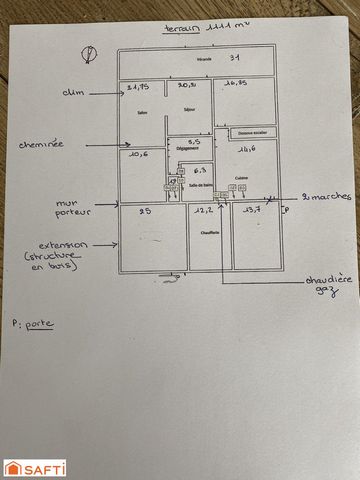 terrain 1111 m²
Véranda 31
clim
21,75
20,21
16,85
Salon
Séjour
Descente escalier
cheminée
5,5
Dégagement
14,6
10,6
6,3
Cuisine
Salle de bains
mur porteur
2 marches
25
12,2
13,7
P
Chaufferie
extension
(structure
en bois)
chaudière
gaz
P: porte
SAFTI